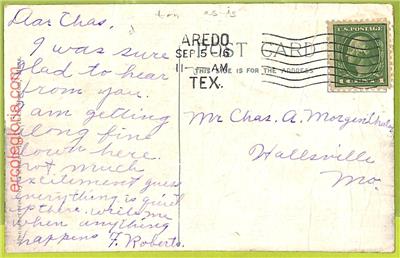 ton as-is
Dear Chas.
I was sure
glad to hear
from you.
am getting
along fine
down here.
not much
excitement guess
everything is quiet
up there. write me
when anything
happens F. Roberts.
AREDO
SEP 5
11- AM
TEX.
POST CARD
THIS SIDE IS FOR THE ADDRESS
U.S. POSTAGE
1 CENTS 1
Mr Chas. A.
Hallsville
Mo.
ercolegloria.com